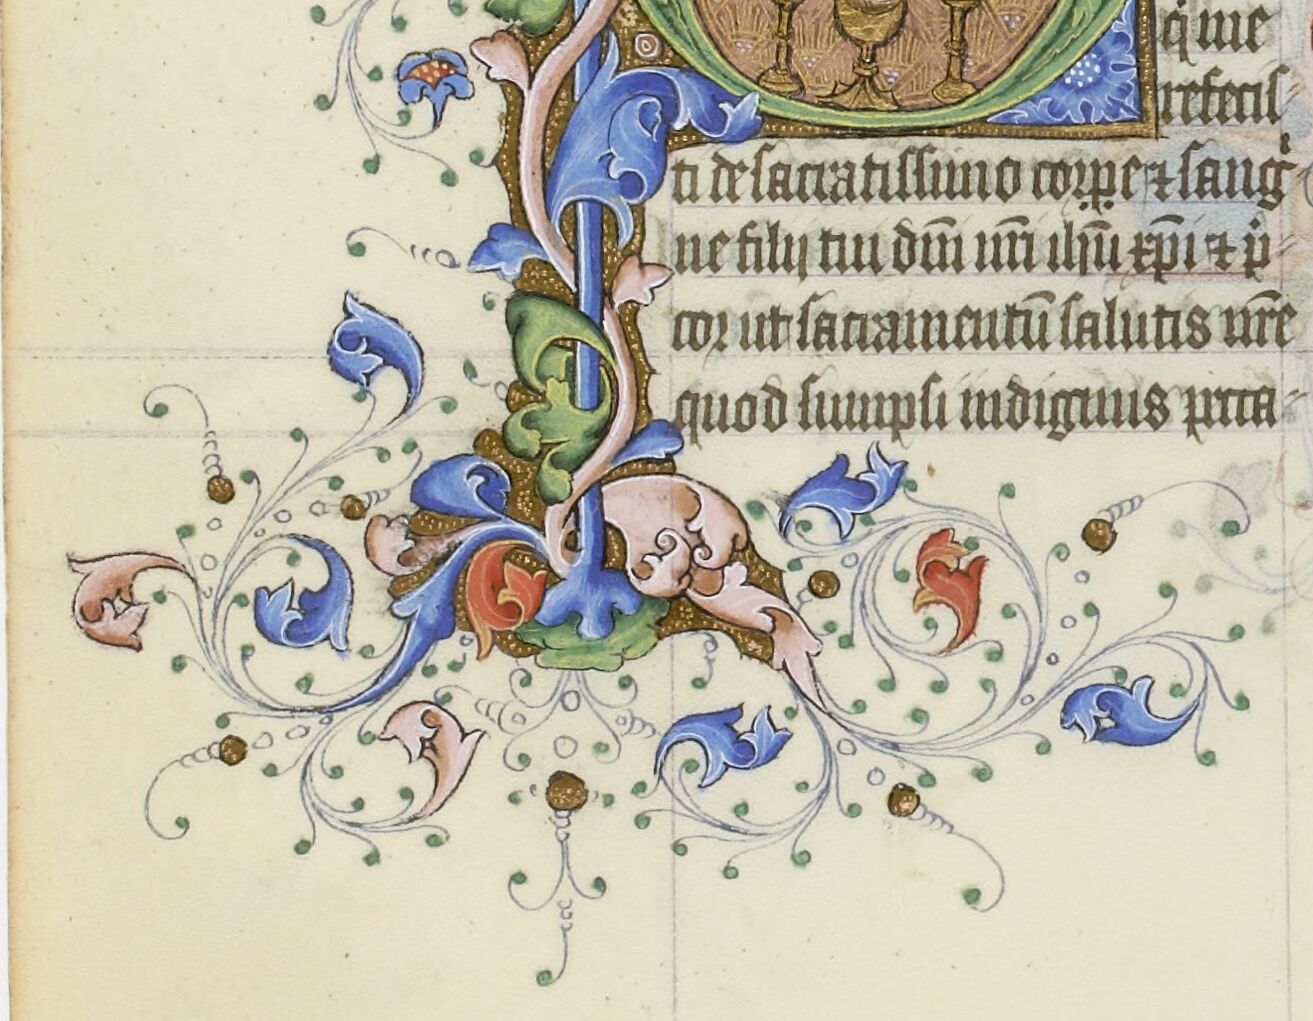 q me
refecis
ti de sacratissimo corpe ⁊ sang
ne filij tui dm̄ nr̄i ihū xp̄i ⁊ p̄
cor ut sacramentū salutis nr̄e
quod sumpsi indignus pcca-